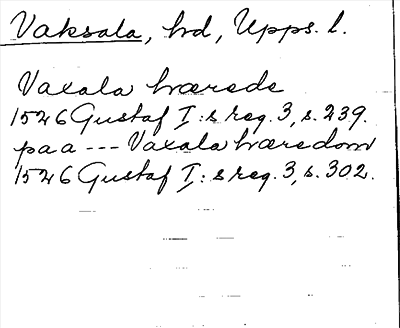 Vaksala, hd, Upps. l.
Vaxala hærede
1526 Gustaf I:s reg. 3, s. 239.
paa --- Vaxala hæredom
1526 Gustaf I:s reg. 3, s. 302.